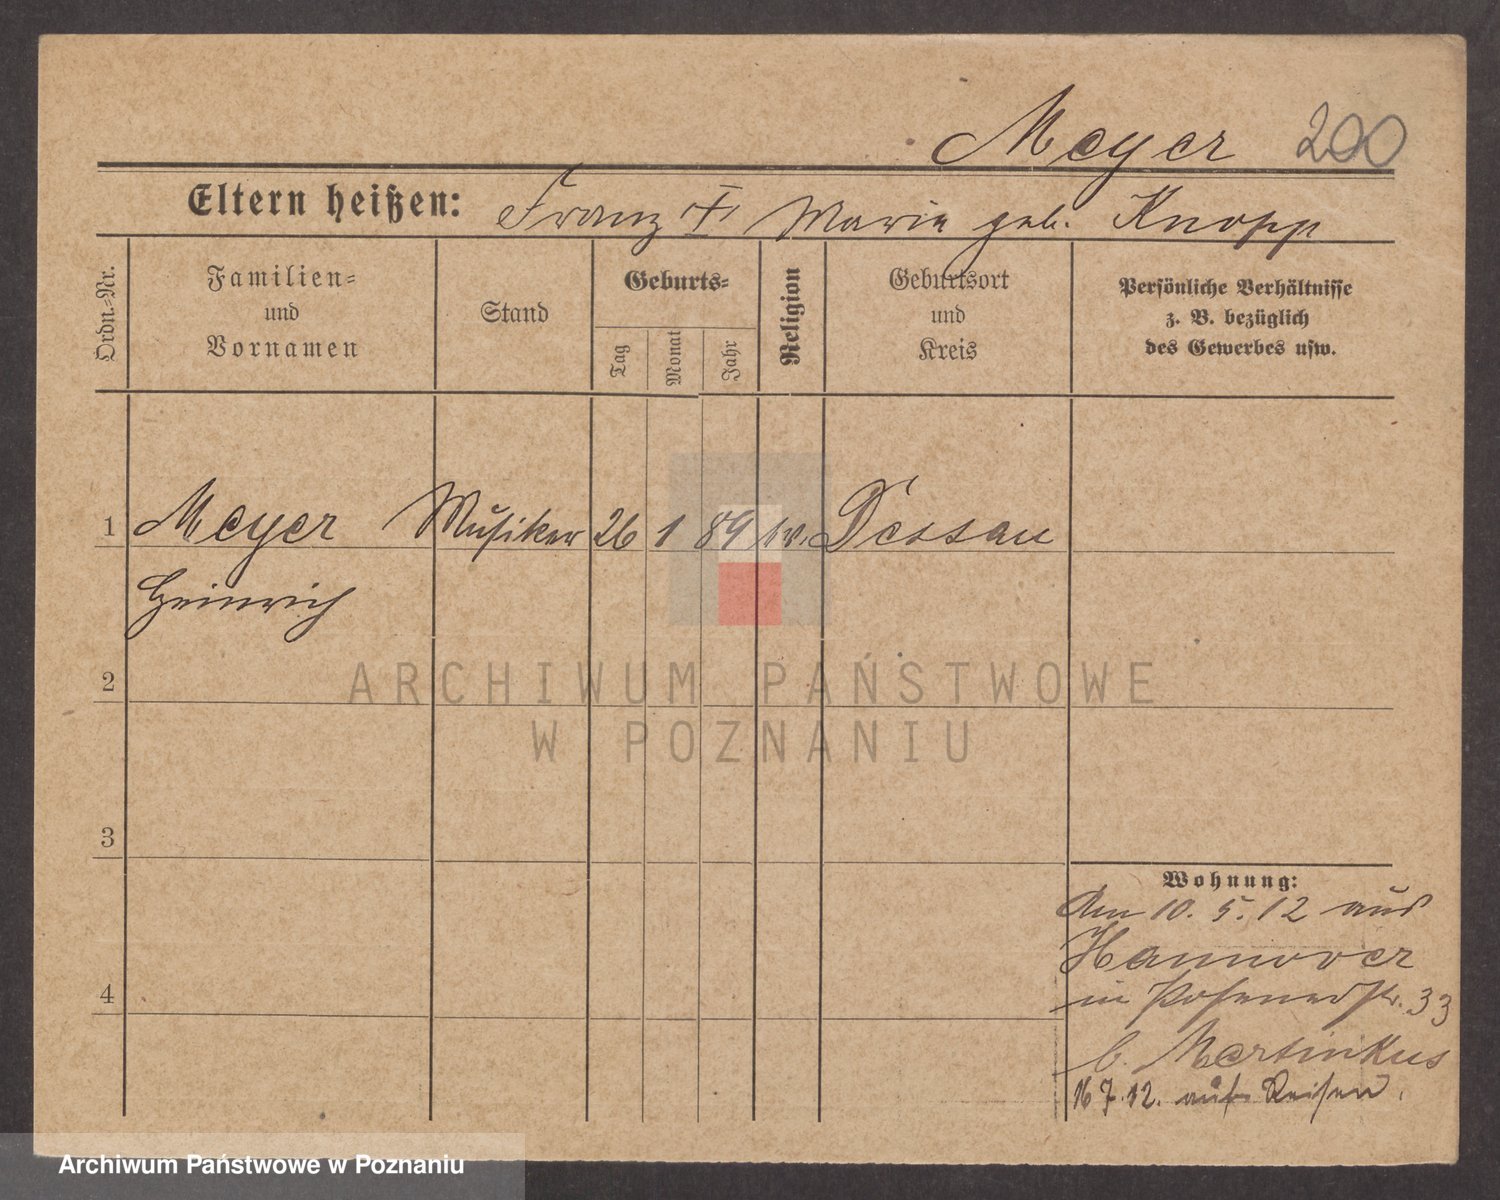 Meyer 200
Eltern heißen: Franz † Marie geb. Knopp
Ordn.=Nr.
Familien=
und
Vornamen
Stand
Geburts=
Tag
Monat
Jahr
Religion
Geburtsort
und
Kreis
Persönliche Verhältnisse
z. B. bezüglich
des Gewerbes usw.
1 Meyer Musiker 26 1 89 ev. Dessau
Heinrich
2
3
4
Wohnung:
Am 10. 5. 12 aus
Hannover
in Posenerstr. 33
b. Martinkus
16 7. 12. auf Reisen.
ARCHIWUM PAŃSTWOWE
W POZNANIU
Archiwum Państwowe w Poznaniu